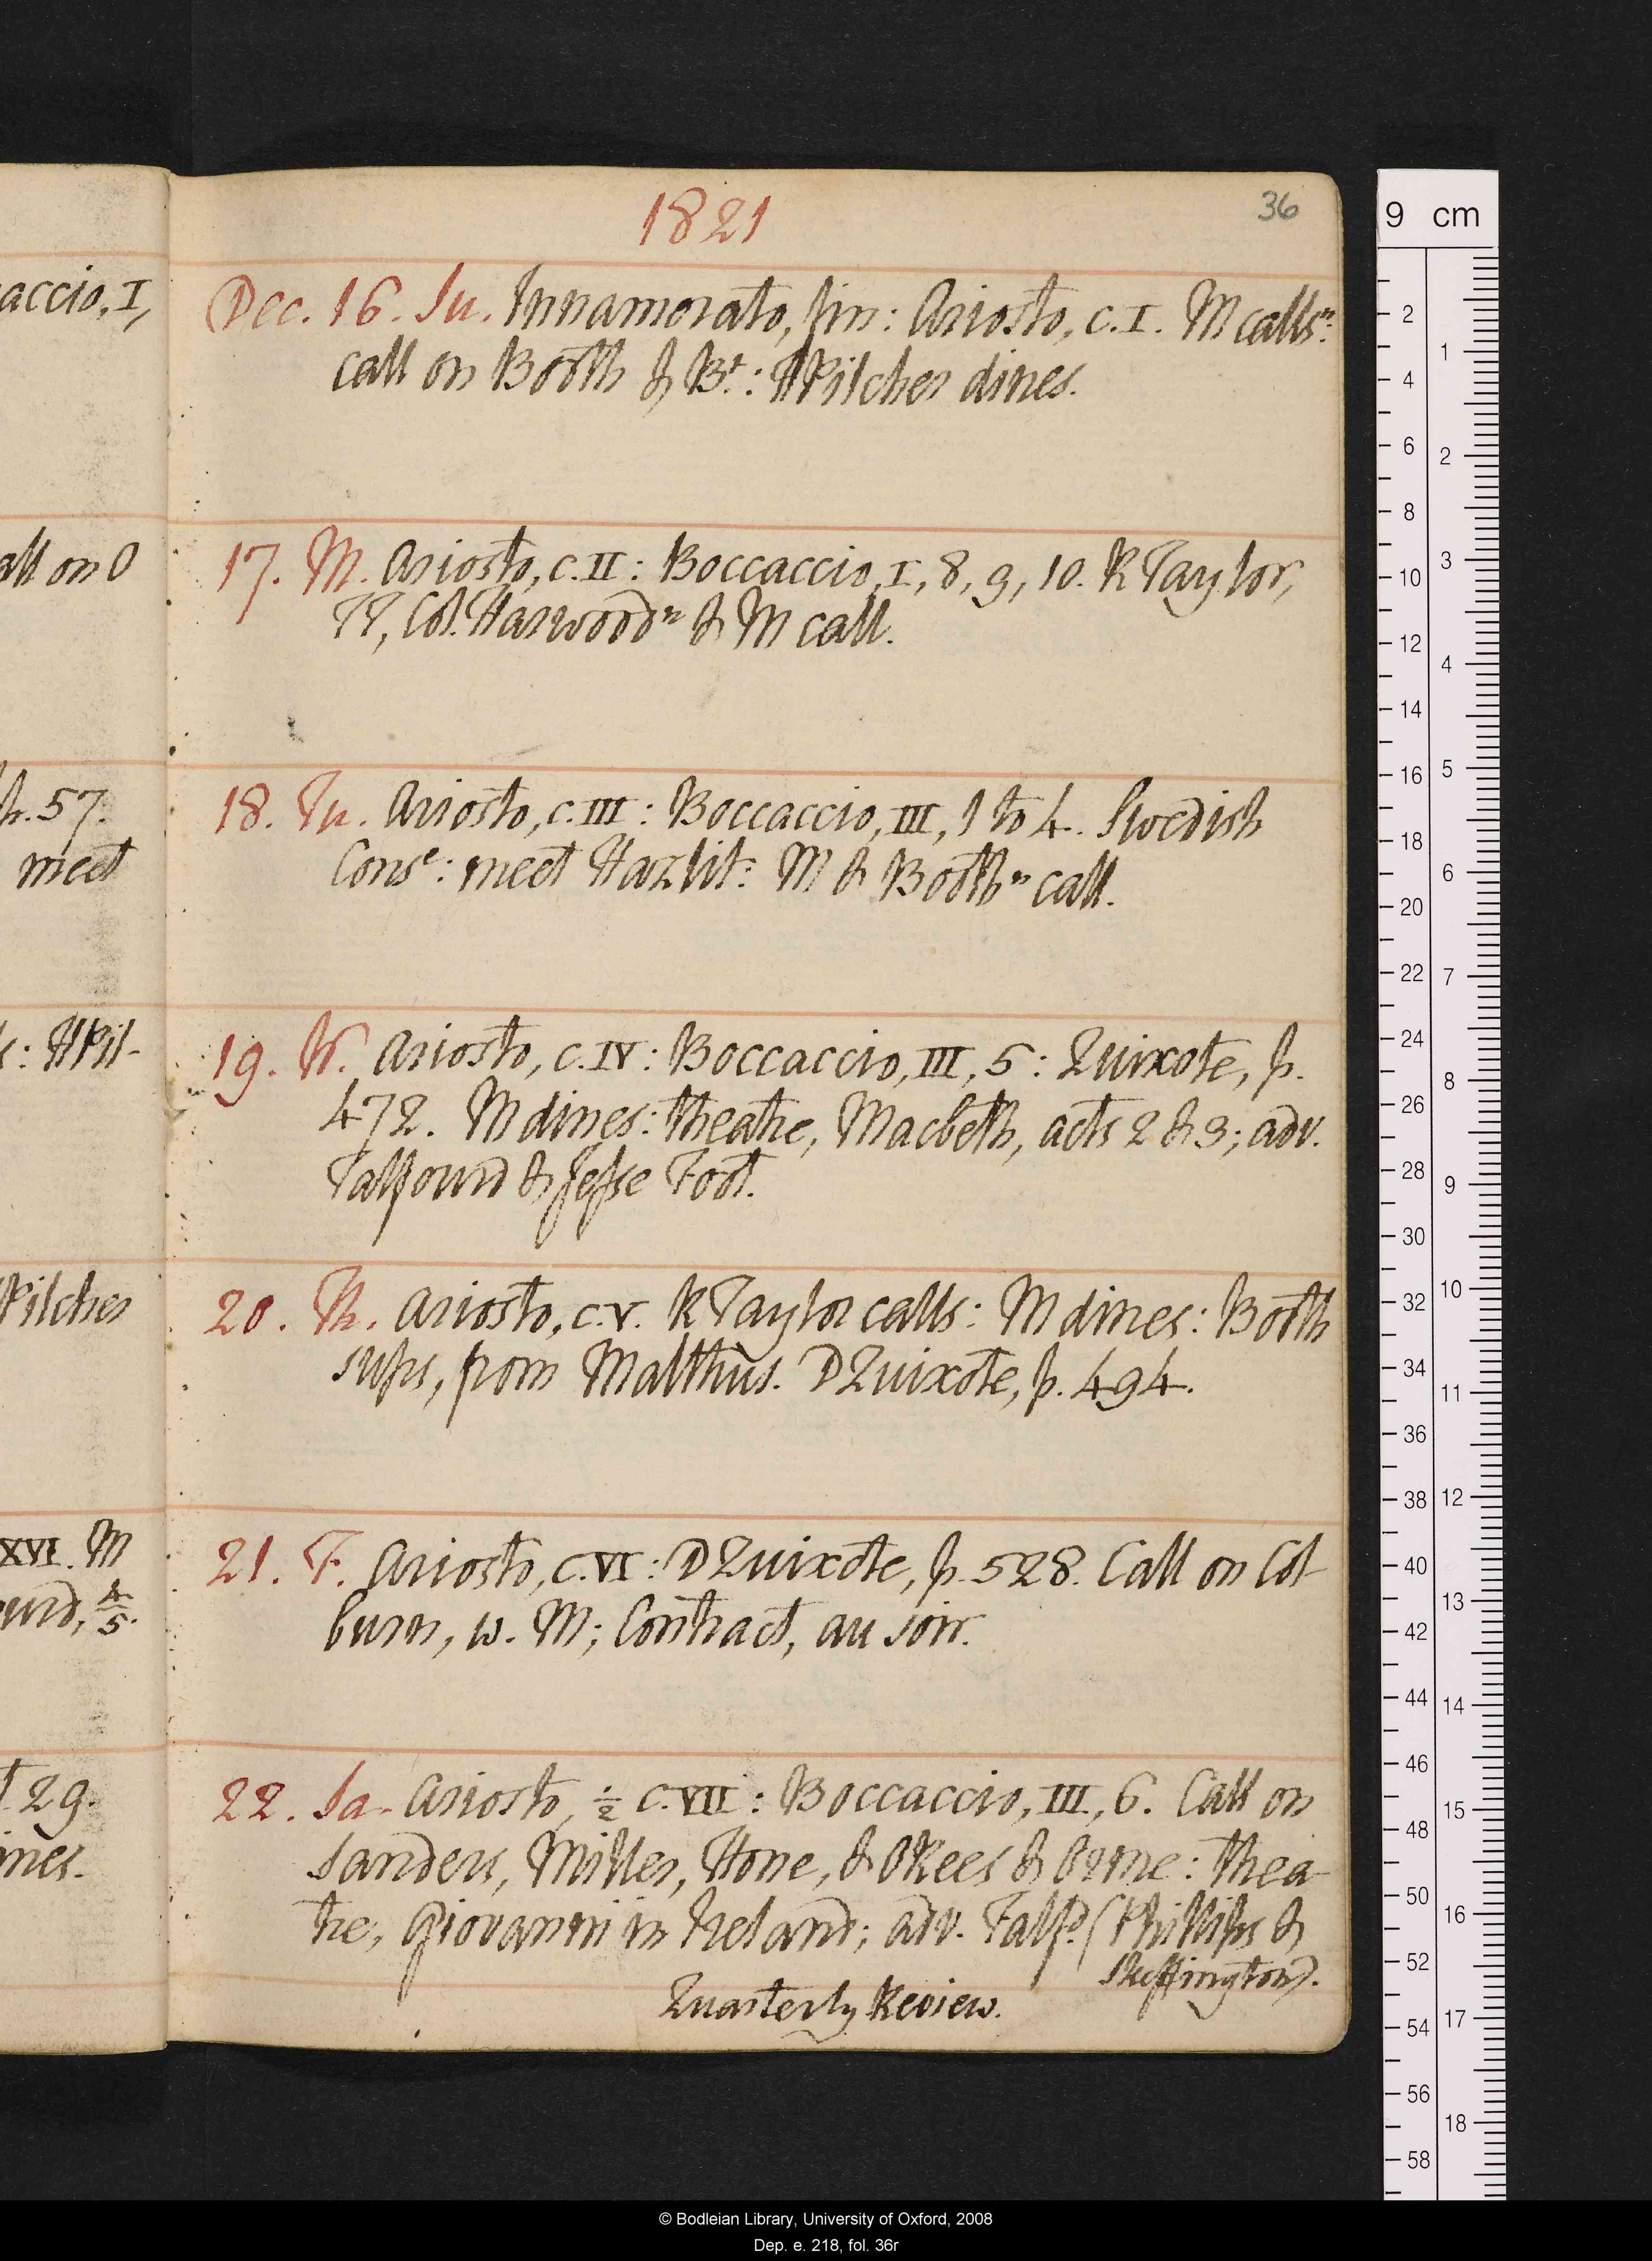 1821
36
Dec. 16. Su. Innamorato, fin: Ariosto, c. I. M calls n:
call on Booth & Bt: HPilcher dines.
17. M. Ariosto, c. II: Boccaccio, I, 8, 9, 10. R Taylor,
TT, Col. Harwood n & M call.
18. Tu. Ariosto, c. III: Boccaccio, III, 1 to 4. Swedish
Conse: meet Hazlit: M & Booth n call.
19. W. Ariosto, c. IV: Boccaccio, III, 5: Quixote, p.
472. M dines: theatre, Macbeth, acts 2 & 3; adv.
Talfourd & Jesse Foot.
20. Th. Ariosto, c. V. R Taylor calls: M dines: Booth
sups, from Malthus. D Quixote, p. 494.
21. F. Ariosto, c. VI: D Quixote, p. 528. Call on Col-
burn, w. M; Contract, au soir.
22. Sa. Ariosto, ½ c. VII: Boccaccio, III, 6. Call on
Sanders, Miller, Hone, & ORees & Orme: thea-
tre, Giovanni in Ireland; adv. Talfd (Phillips &
Skeffington).
Quarterly Review.
accio, I,
all on O
p. 57.
meet
: HPil-
Pilcher
XVI. M
urd, 4/5.
29.
ines.
9 cm
2
4
6
8
10
12
14
16
18
20
22
24
26
28
30
32
34
36
38
40
42
44
46
48
50
52
54
56
58
1
2
3
4
5
6
7
8
9
10
11
12
13
14
15
16
17
18
© Bodleian Library, University of Oxford, 2008
Dep. e. 218, fol. 36r